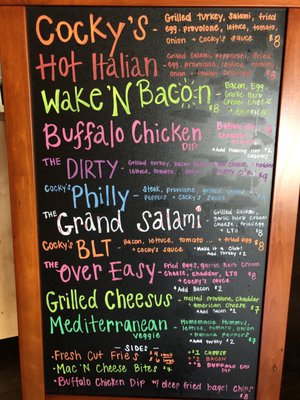 Cocky's - Grilled turkey, salami, fried
egg, provolone, lettuce, tomato,
onion + Cocky's sauce $8
Hot Italian - Grilled salami, pepperoni, fried
egg, provolone, lettuce, tomato,
onion + Italian
Wake 'N Bacon - Bacon, Egg
Garlic herb
cream cheese
+ American
$8
Buffalo Chicken
DIP
THE DIRTY - Grilled turkey, bacon
lettuce, tomato
Cocky's Philly - steak, provolone, grilled
peppers + Cocky's sauce
THE Grand Salami - Grilled salami,
garlic herb cream
cheese, fried egg
+ LTO $8
Cocky's BLT - Bacon, lettuce, tomato + fried egg $8
+ Cocky's sauce
Add Turkey $2
THE Over Easy - Fried eggs, garlic herb cream
cheese, cheddar, LTO $8
+ Cocky's sauce
+ Add Bacon $2
Grilled Cheesus - melted provolone, cheddar
+ American cheese $7
+ Add bacon $2
Mediterranean - Homemade hummus,
veggie
lettuce, tomato, onion
+ banana peppers $7
+ Add turkey $2
- SIDES -
-Fresh Cut Fries
+$1 CHEESE
+$2 BACON
-Mac 'N Cheese Bites $4
-Buffalo Chicken Dip w/ deep fried bagel chips
$8